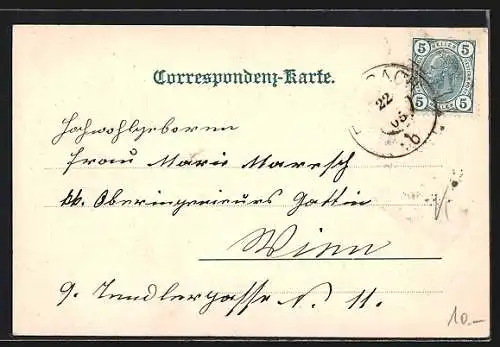 Correspondenz-Karte.
5 5
5 5
22
05
Hochwohlgeboren
Frau Marie Maresch
kk. Oberingenieurs Gattin
Wien
9. Tendlergasse N. 11.
10.-